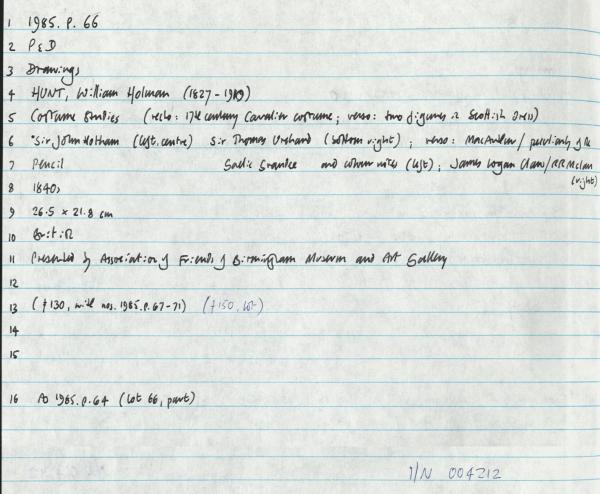 1 1985.P.66
2 P&D
3 Drawings
4 HUNT, William Holman (1827-1910)
5 Costume Studies (recto: 17th century Cavalier costume; verso: two figures in Scottish Dress)
6 "Sir John Hotham (left, centre) Sir Thomas Urchard (bottom right); verso: MacAndrew / peculiarly of the
7 Pencil Gaelic and colour notes (left); James Logan Clans/RR McIan
(right)
8 1840s
9 26.5 x 21.8 cm
10 British
11 Presented by Association of Friends of Birmingham Museum and Art Gallery
12
13 (£130, with nos. 1985.P.67-71) (£150, lot)
14
15
16 As 1985.P.64 (Lot 66, part)
I/N 004212